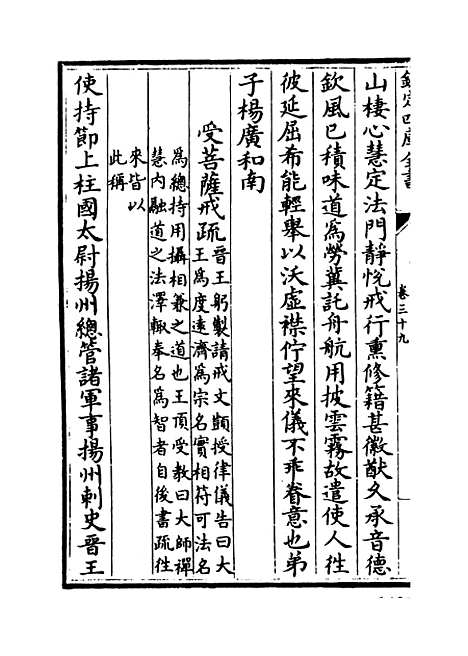 欽定四庫全書
卷三十九
山棲心慧定法門靜悅戒行熏修籍甚徽猷久承音德
欽風已積味道為勞冀託舟航用披雲霧故遣使人徃
彼延屈希能輕舉以沃虛襟佇望來儀不乖眷意也弟
子楊廣和南
受菩薩戒疏
晉王躬製請戒文顗授律儀告曰大
王為度遠濟為宗名實相符可法名
為總持用攝相兼之道也王頂受教曰大師禪
慧內融道之法澤輙奉名為智者自後書疏徃
來皆以
此稱
使持節上柱國太尉揚州總管諸軍事揚州刺史晉王